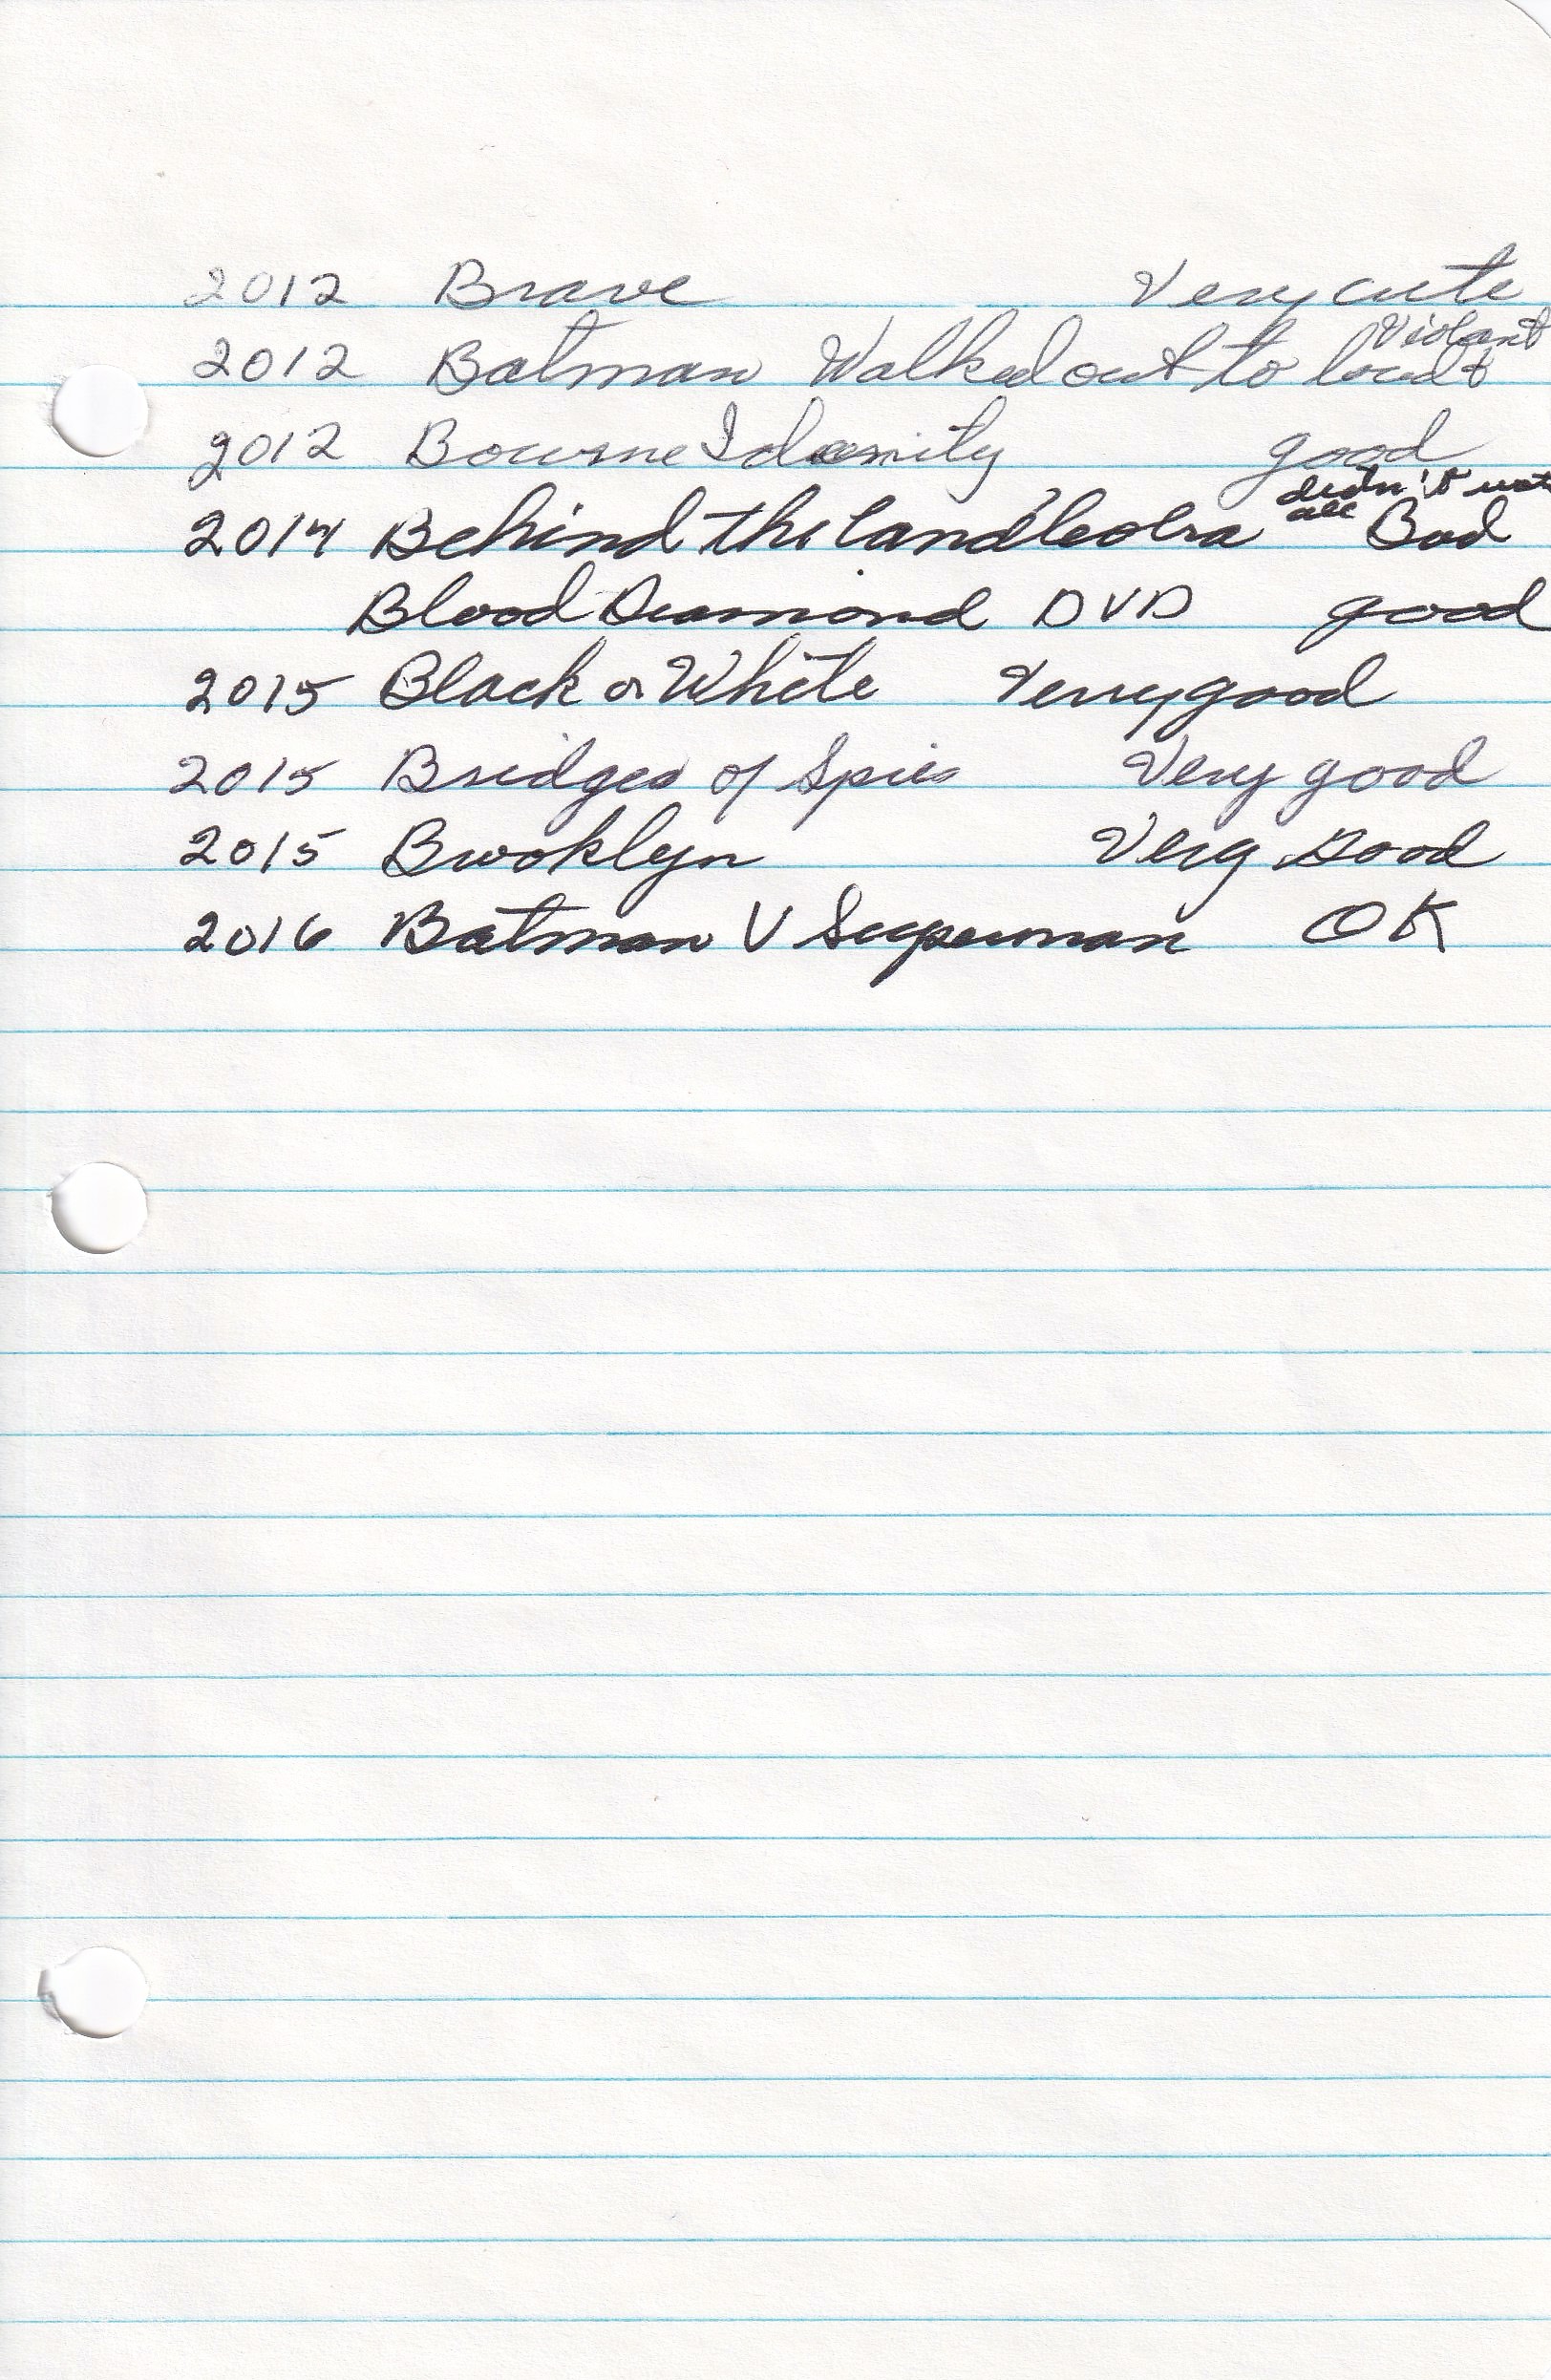 2012 Brave Very cute
2012 Batman Walked out to loud & Violant
2012 Bourne Idenity good
2014 Behind the Candleobra didn't all Bad
Blood Diamond DVD good
2015 Black or White Very good
2015 Bridges of Spies Very good
2015 Brooklyn Very Good
2016 Batman V Superman OK